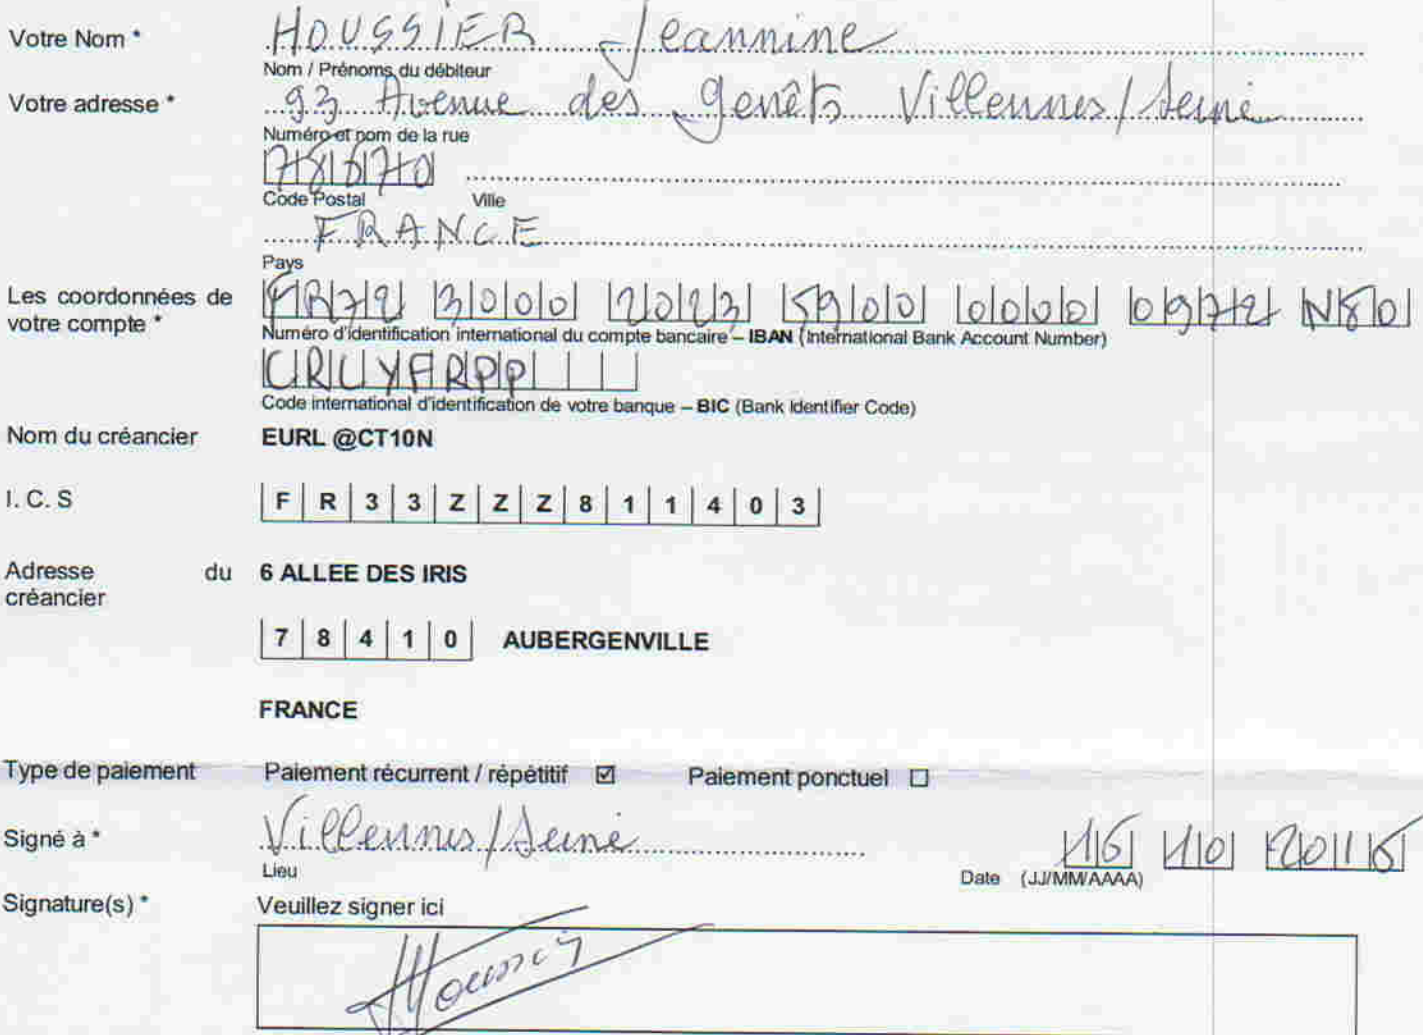 Votre Nom * HOUSSIER Jeannine
Nom / Prénoms du débiteur
Votre adresse * 93 Avenue des genêts Villennes/Seine
Numéro et nom de la rue
78670
Code Postal Ville
FRANCE
Pays
Les coordonnées de votre compte * FR72 3000 2023 5900 0000 0972 N80
Numéro d'identification international du compte bancaire – IBAN (International Bank Account Number)
CRLYFRPP
Code international d'identification de votre banque – BIC (Bank Identifier Code)
Nom du créancier EURL @CT10N
I. C. S FR33ZZZ811403
Adresse du créancier 6 ALLEE DES IRIS
78410 AUBERGENVILLE
FRANCE
Type de paiement Paiement récurrent / répétitif ☑ Paiement ponctuel ☐
Signé à * Villennes/Seine 16 10 2016
Lieu Date (JJ/MM/AAAA)
Signature(s) * Veuillez signer ici